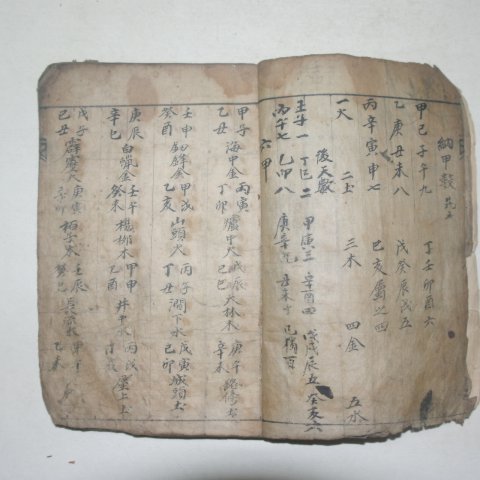 納甲數
甲己子午九
乙庚丑未八 丁壬卯酉六
丙辛寅申七 戊癸辰戌五
巳亥屬之四
一火 二土 三木 四金 五水
後天數
壬子一 丁巳二 甲寅三 辛酉四 戊戌辰五 癸亥六
丙午七 乙卯八 庚辛 丑未十 己獨百
六甲
甲子 海中金 丙寅 爐中火 戊辰 大林木 庚午 路傍土
乙丑 丁卯 己巳 辛未
壬申 釼鋒金 甲戌 山頭火 丙子 澗下水 戊寅 城頭土
癸酉 乙亥 丁丑 己卯
庚辰 白蠟金 壬午 楊柳木 甲申 井中水 丙戌 屋上土
辛巳 癸未 乙酉 丁亥
戊子 霹靂火 庚寅 松栢木 壬辰 長流水 甲午
己丑 辛卯 癸巳 乙未